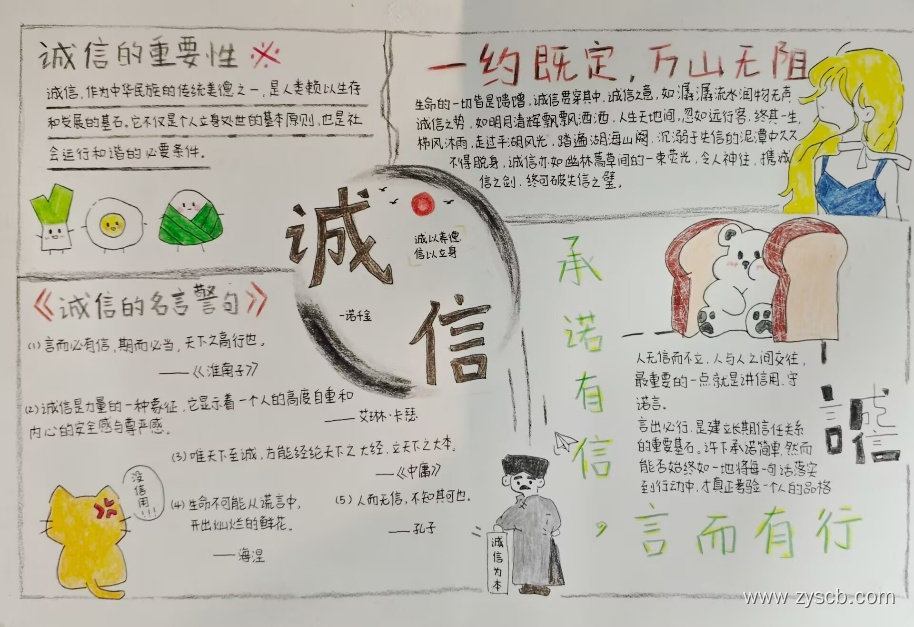 诚信的重要性
诚信，作为中华民族的传统美德之一，是人类赖以生存
和发展的基石。它不仅是个人立身处世的基本原则，也是社
会运行和谐的必要条件。
一约既定，万山无阻
生命的一切皆是馈赠，诚信贯穿其中，诚信之意，如潺潺流水润物无声
诚信之势，如明月清辉飘飘洒洒，人生天地间，忽如远行客，终其一生，
栉风沐雨，走过平湖风光，踏遍湖海山阙，沉溺于失信的泥潭中久久
不得脱身，诚信亦如幽林蒿草间的一束荧光，令人神往，携诚
信之剑，终可破失信之壁。
诚
信
诚以养德
信以立身
一诺千金
《诚信的名言警句》
(1) 言而必有信，期而必当，天下之高行也。
——《淮南子》
(2) 诚信是力量的一种象征，它显示着一个人的高度自重和
内心的安全感与尊严感。
——艾琳·卡瑟
(3) 唯天下至诚，方能经纶天下之大经，立天下之大本。
——《中庸》
(4) 生命不可能从谎言中，
开出灿烂的鲜花。
——海涅
(5) 人而无信，不知其可也。
——孔子
没信用!!!
诚信为本
承诺有信，
言而有行
人无信而不立，人与人之间交往，
最重要的一点就是讲信用，守
诺言。
言出必行，是建立长期信任关系
的重要基石。许下承诺简单，然而
能否始终如一地将每一句话落实
到行动中，才真正考验一个人的品格
诚信
www.zyscb.com